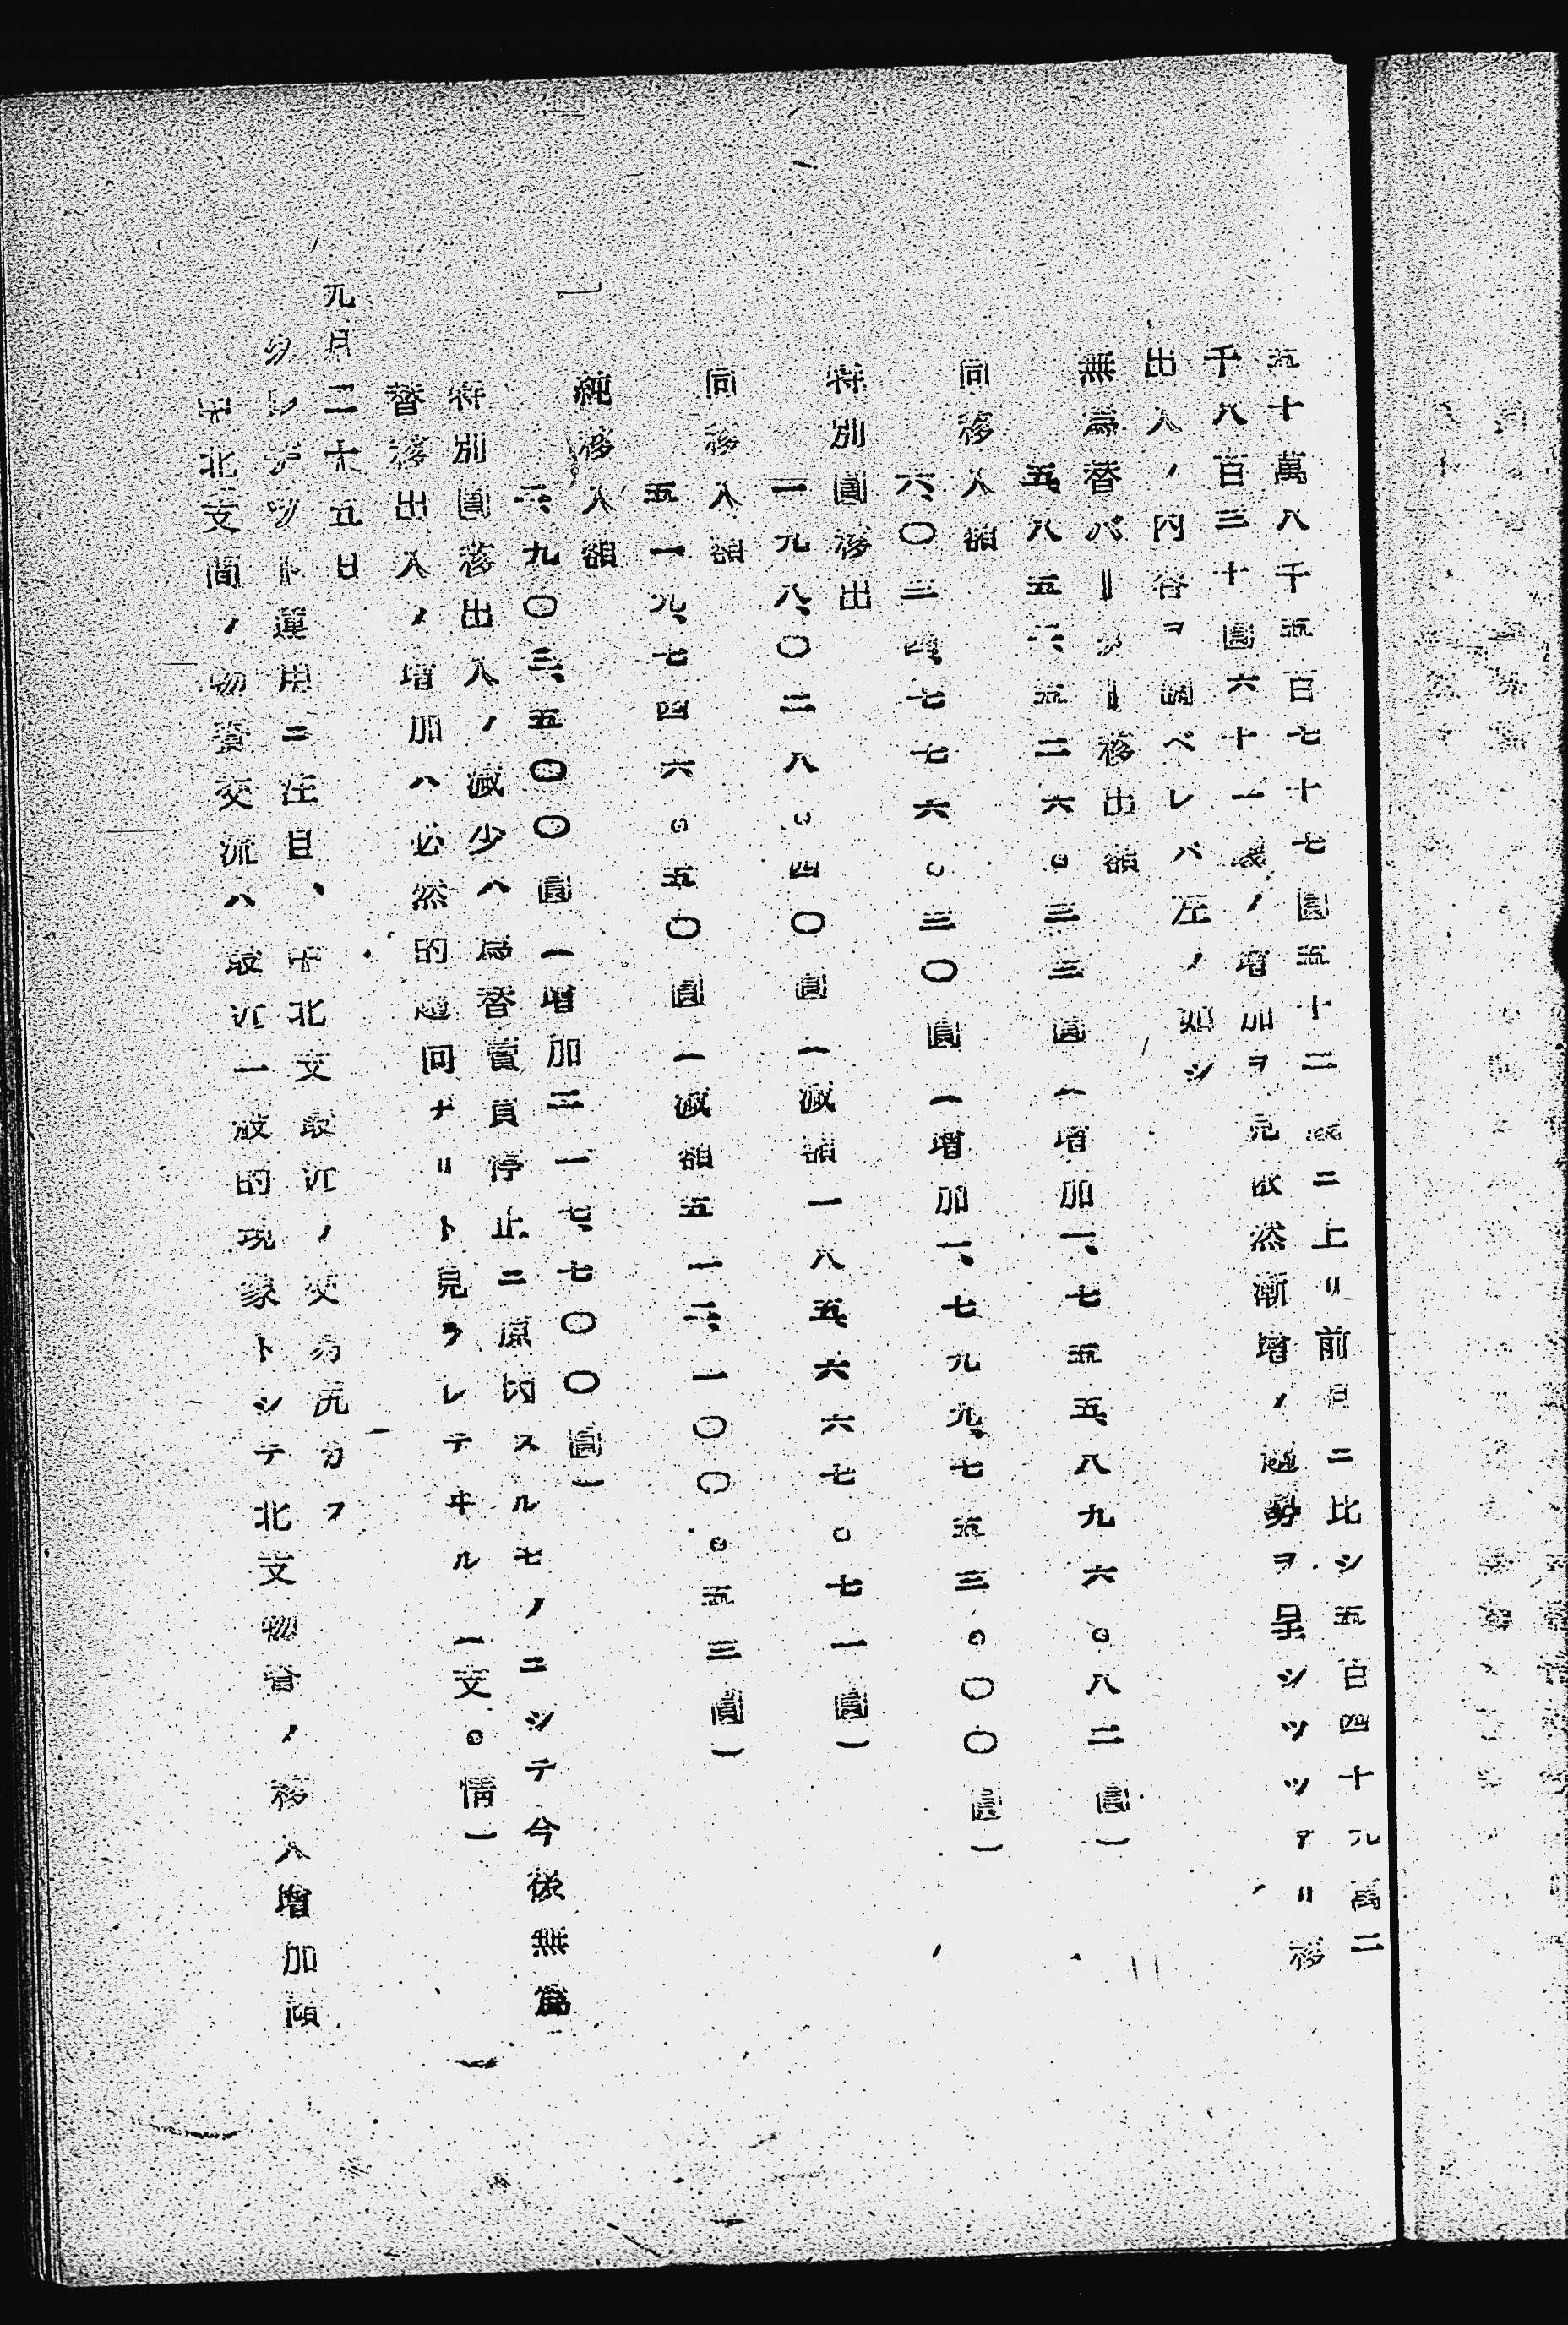 五十萬八千五百七十七圓五十二錢ニ上リ前日ニ比シ五百四十九萬二
千八百三十圓六十一錢ノ增加ヲ見依然漸增ノ趨勢ヲ呈シツツアリ移
出入ノ內容ヲ調ベレバ左ノ如シ
無爲替バーター移出額
五、八五六、五二六。三三圓(增加一、七五五、八九六。八二圓)
同移入額
六、〇三四、七七六。三〇圓(增加一、七九九、七五三。〇〇圓)
特別圓移出
一九八、〇二八。四〇圓(減額一八五、六六七。七一圓)
同移入額
五一九、七四六。五〇圓(減額五一二、一〇〇。五三圓)
純移入額
六、九〇三、五〇〇圓(增加三一七、七〇〇圓)
特別圓移出入ノ減少ハ爲替賣買停止ニ原因スルモノニシテ今後無爲
替移出入ノ增加ハ必然的趨向ナリト見ラレテヰル(支。情)
九月二十五日
クレヂツト運用ニ注目、中北支最近ノ交易尻カフ
中北支間ノ物資交流ハ最近一般的現象トシテ北支物資ノ移入增加傾